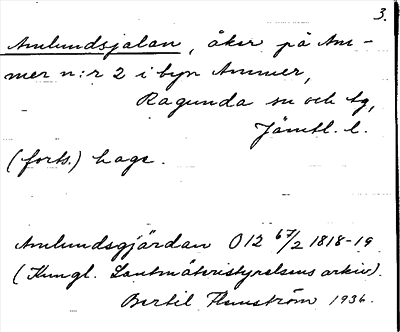 3.
Amlundsjalan, åker på Am-
mer n:r 2 i byn Ammer,
Ragunda sn och tg,
Jämtl. l.
(forts.) hage.
Amlundsgjärdan O12 67/2 1818-19
(Kungl. Lantmäteristyrelsens arkiv).
Bertil Flemström 1936.